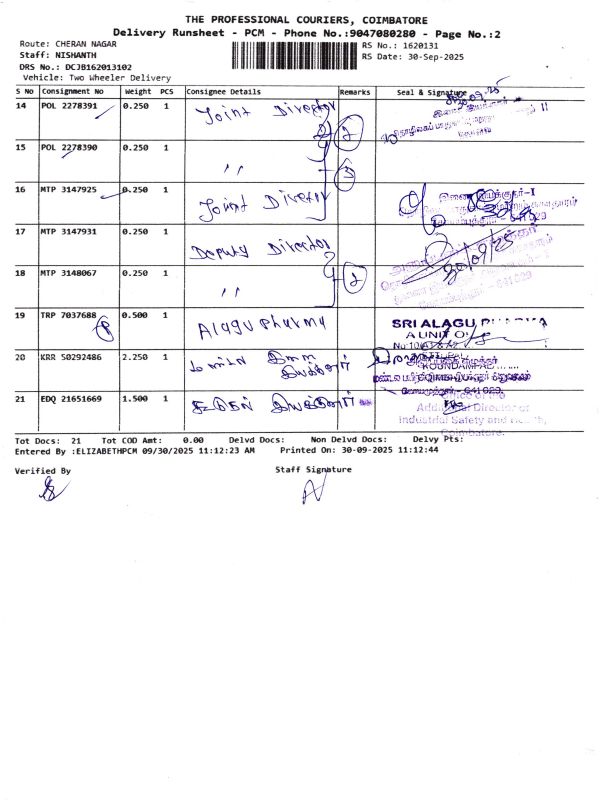 THE PROFESSIONAL COURIERS, COIMBATORE
Delivery Runsheet - PCM - Phone No.:9047080280 - Page No.:2
Route: CHERAN NAGAR
RS No.: 1620131
Staff: NISHANTH
RS Date: 30-Sep-2025
DRS No.: DCJB162013102
Vehicle: Two Wheeler Delivery
S No Consignment No Weight PCS Consignee Details Remarks Seal & Signature
14 POL 2278391 0.250 1 Joint Director 2
15 POL 2278390 0.250 1 " 3
16 MTP 3147925 0.250 1 Joint Director இணை இயக்குநர்-I
17 MTP 3147931 0.250 1 Deputy Director 30/09/25
18 MTP 3148067 0.250 1 " 2
19 TRP 7037688 0.500 1 Alagu Pharma SRI ALAGU PHARMA
A UNIT OF
20 KRR 50292486 2.250 1 மண்டல இணை இயக்குநர்
21 EDQ 21651669 1.500 1 கூடுதல் இயக்குநர் Office of the
Additional Director of
Industrial Safety and Health,
Coimbatore.
Tot Docs: 21 Tot COD Amt: 0.00 Delvd Docs: Non Delvd Docs: Delvy Pts:
Entered By :ELIZABETHPCM 09/30/2025 11:12:23 AM Printed On: 30-09-2025 11:12:44
Verified By Staff Signature